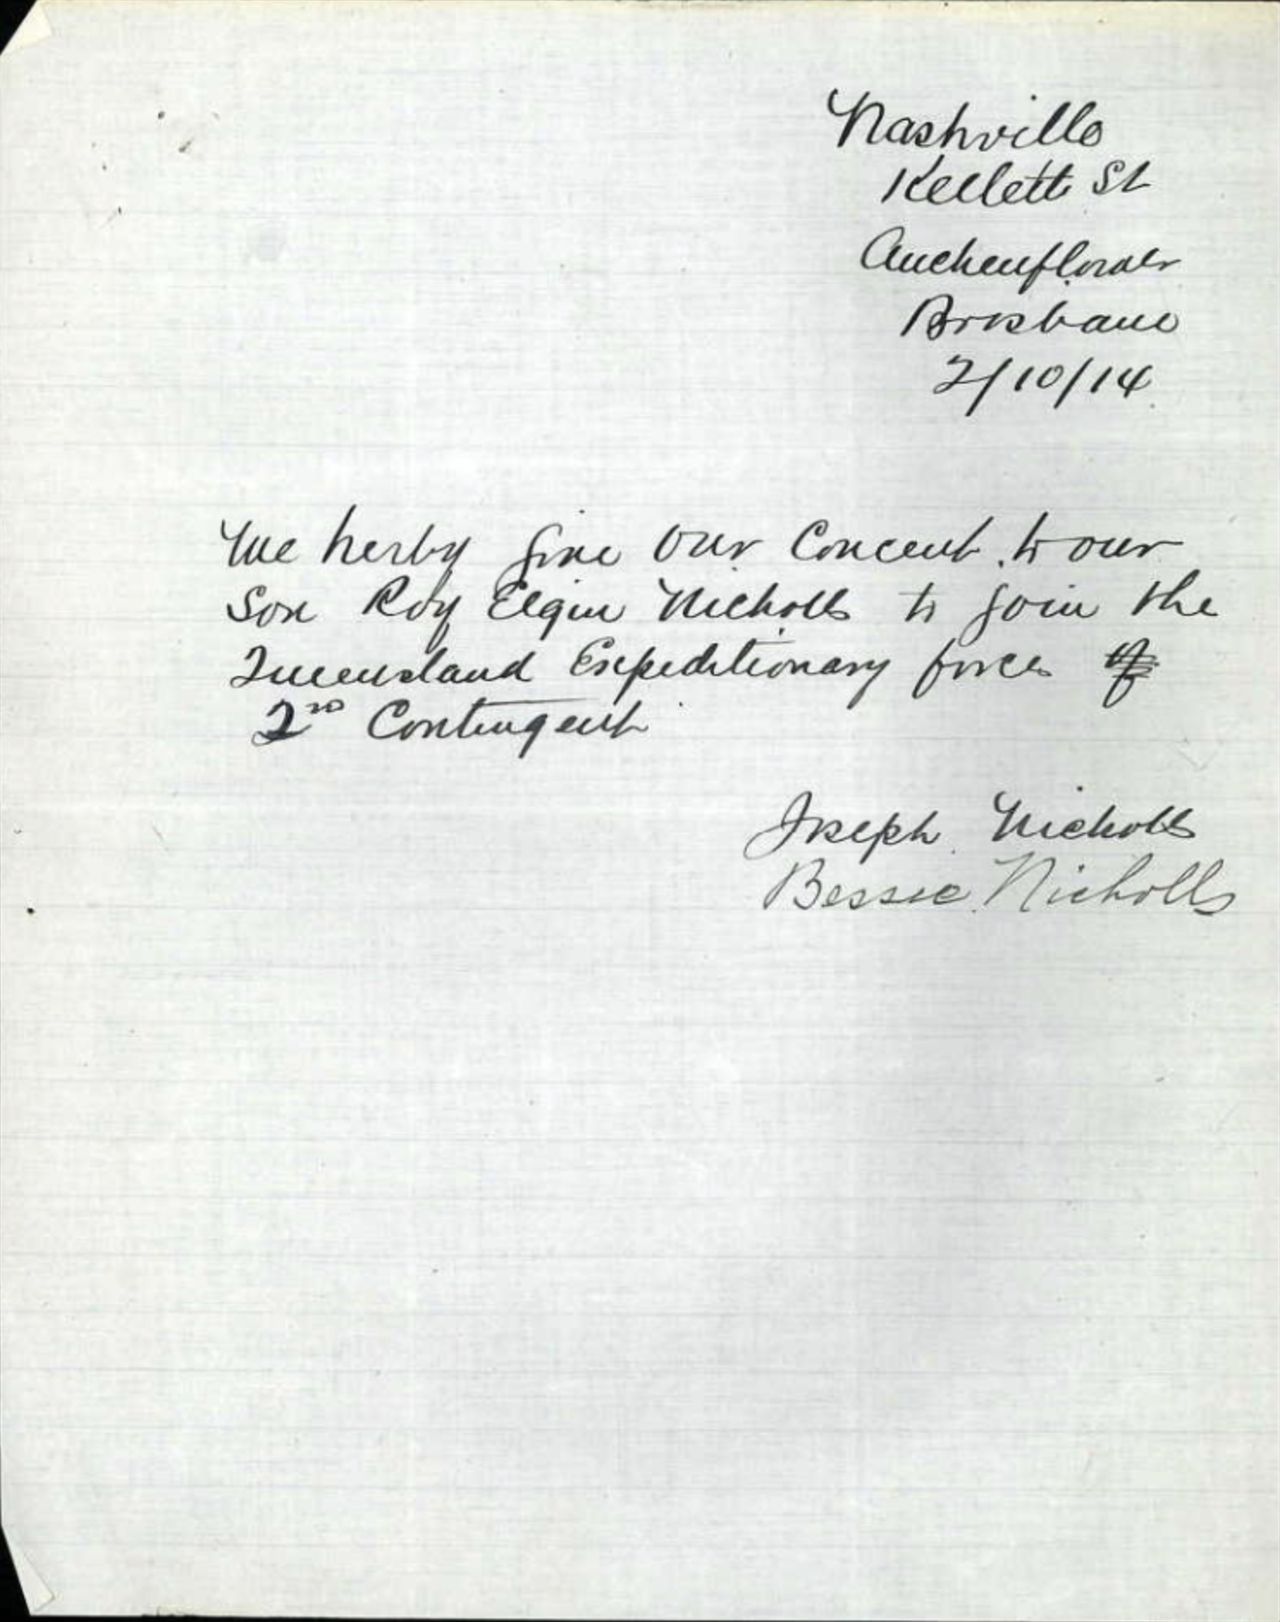 Nashville
Kellett St
Auchenflower
Brisbane
2/10/14
We herby give our Concent to our
Son Roy Elgin Nicholls to join the
Queensland Expeditionary forces of
2nd Contingent
Joseph Nicholls
Bessie Nicholls